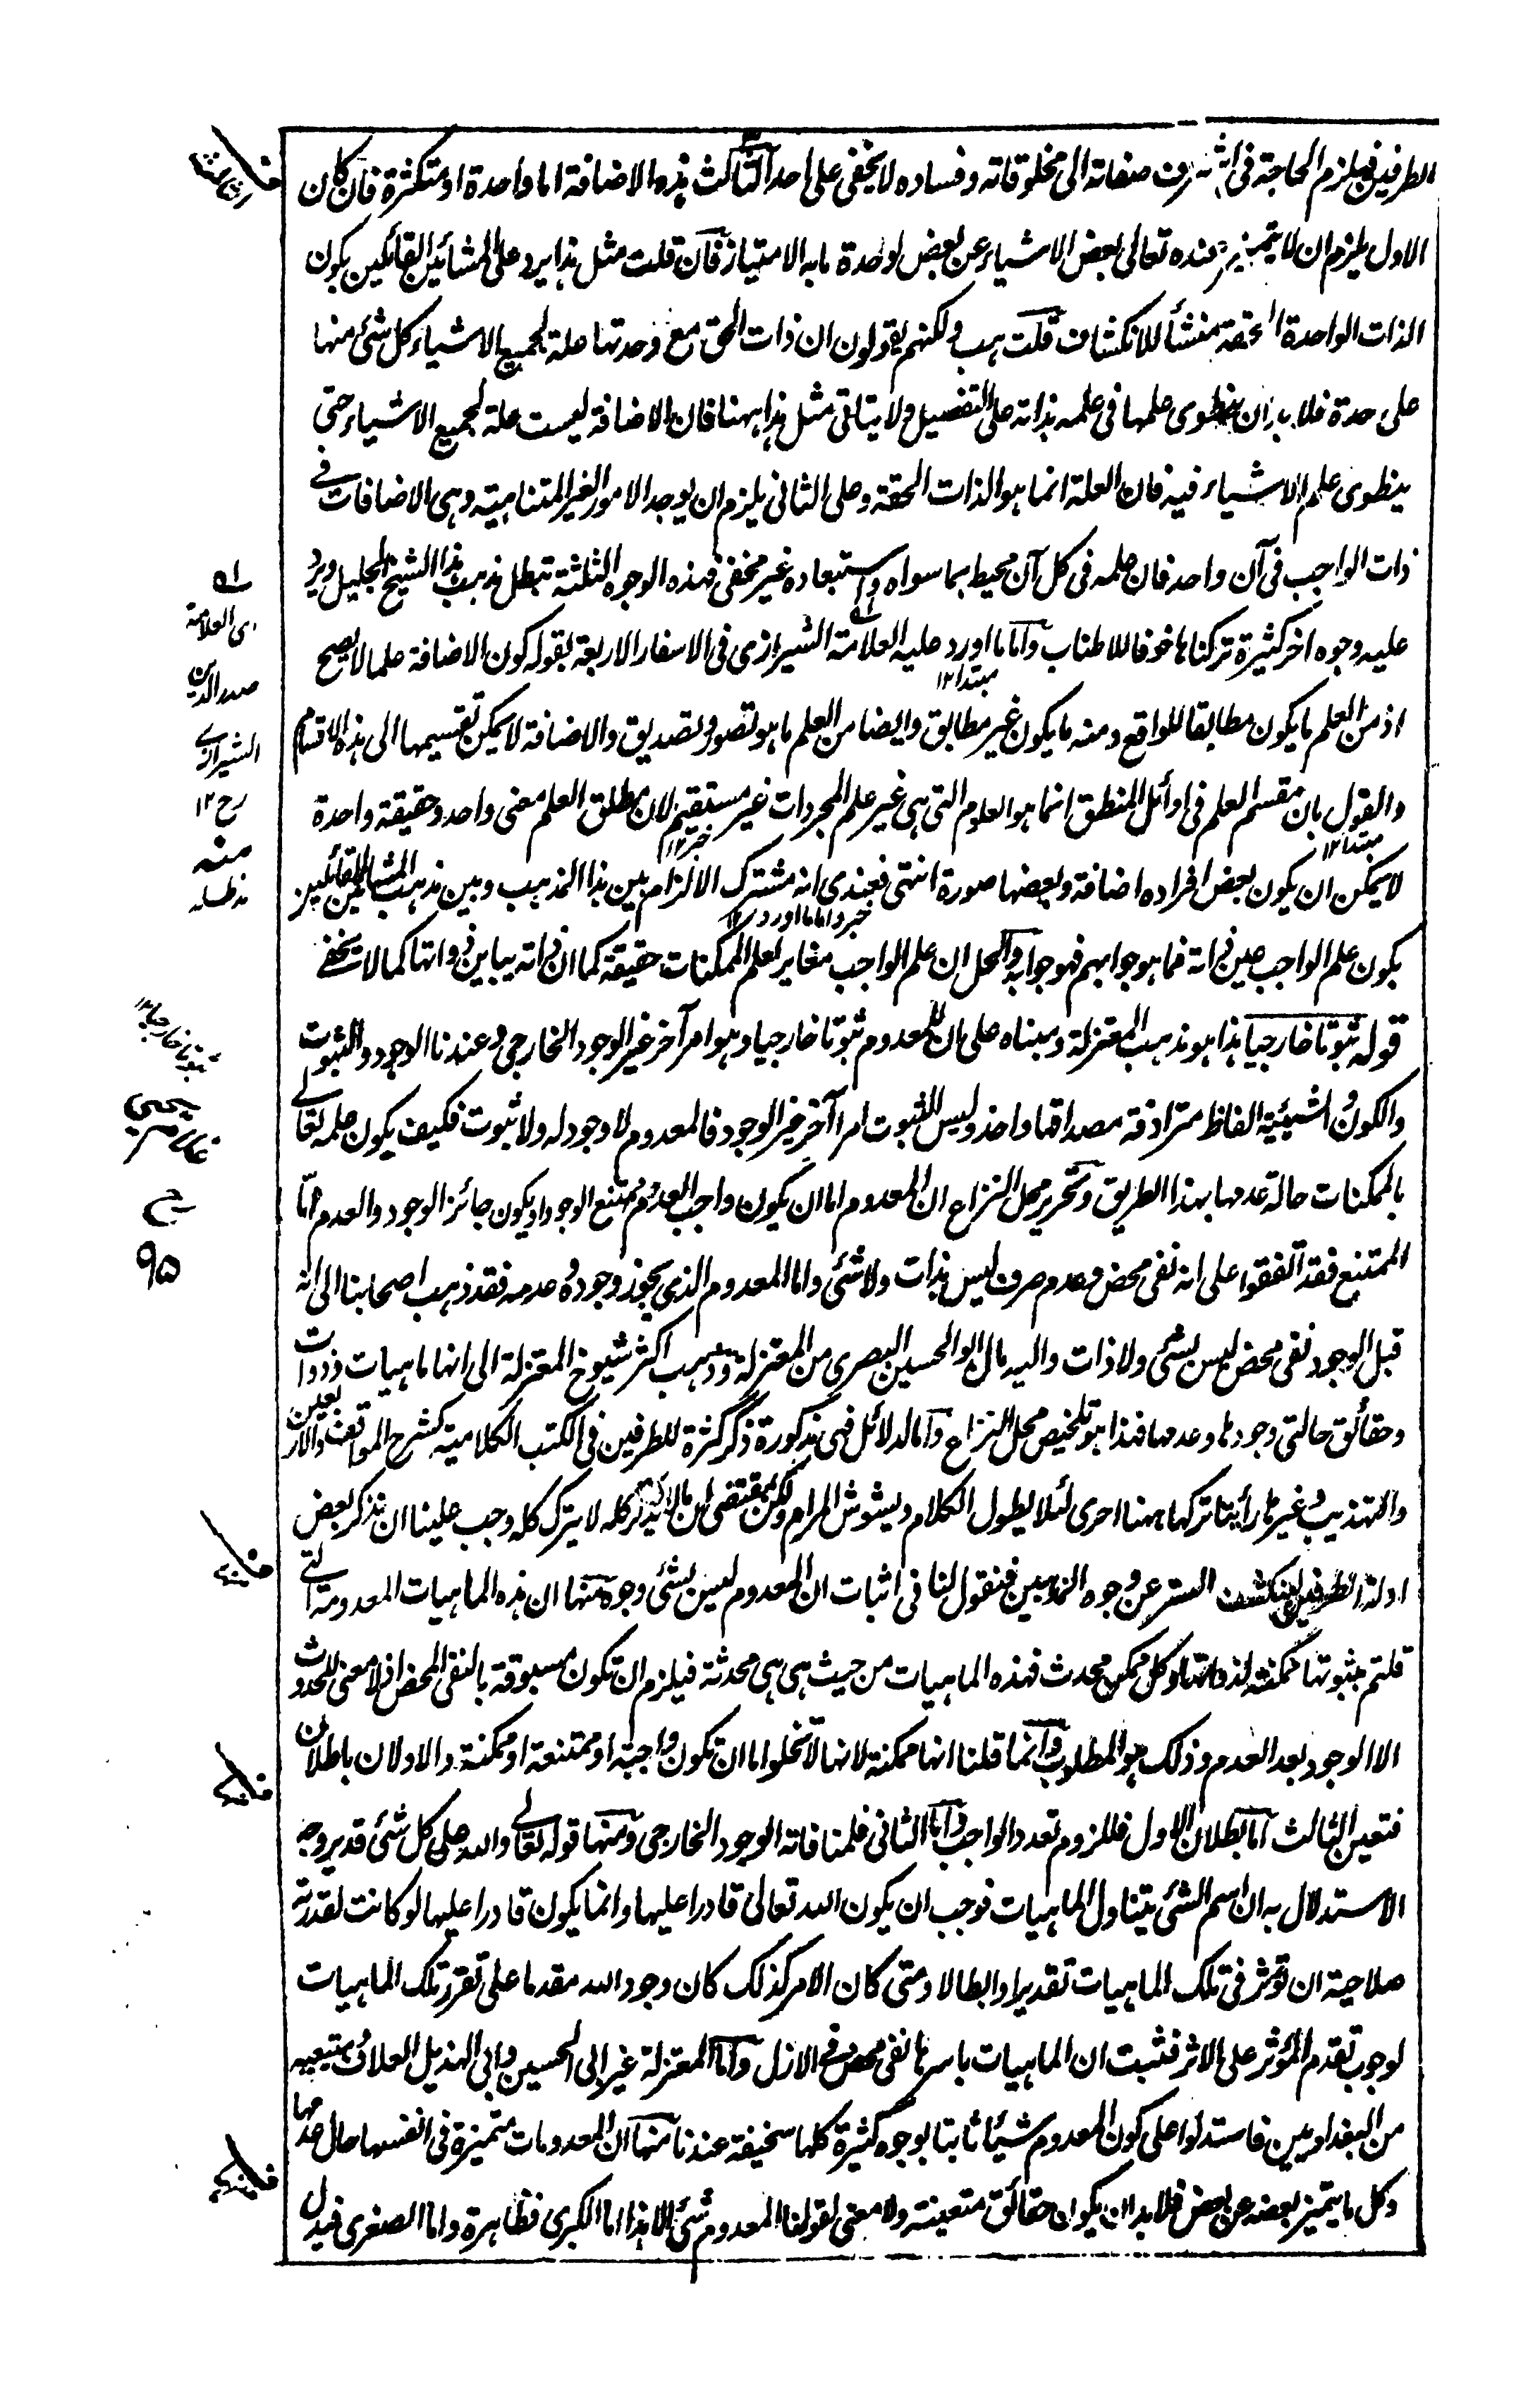 الطرفين فيلزم الحاجة في اشرف صفاته الى مخلوقاته وفساده لا يخفى على احد الثالث هذه الاضافة اما واحدة او متكثرة فان كان
الاول يلزم ان لا يتميز عنده تعالى بعض الاشياء عن بعض لوحدة ما به الامتياز فان قلت مثل هذا يرد على المشائين القائلين بكون
الذات الواحدة الحقة منشأ للانكشاف قلت هب ولكنهم يقولون ان ذات الحق مع وحدتها علة لجميع الاشياء كل شئ منها
على حدة فلا بد ان ينطوى علمها في علمه بذاته على التفصيل ولا يتاتى مثل هذا ههنا فان الاضافة ليست علة لجميع الاشياء حتى
ينطوى علم الاشياء فيه فان العلة انما هو الذات الحقة وعلى الثاني يلزم ان يوجد الامور الغير المتناهية وهي الاضافات في
ذات الواجب في آن واحد فان علمه في كل آن محيط بما سواه واستبعاده غير مخفى فهذه الوجوه الثلثة تبطل مذهب هذا الشيخ الجليل ويرد
عليه وجوه اخر كثيرة تركناها خوفا للاطناب واما ما اورد عليه العلامة الشيرازى في الاسفار الاربعة بقوله كون الاضافة علما لا يصح
مبتدا ١٢
اذ من العلم ما يكون مطابقا للواقع ومنه ما يكون غير مطابق وايضا من العلم ما هو تصور وتصديق والاضافة لا يمكن تقسيمها الى هذه الاقسام
والقول بان مقسم العلم في اوائل المنطق انما هو العلوم التي هي غير علم المجردات غير مستقيم لان مطلق العلم معنى واحد وحقيقة واحدة
مبتدا ١٢ خبر ١٢
لا يمكن ان يكون بعض افراده اضافة وبعضها صورة انتهى فعندى انه مشترك الالزام بين هذا المذهب وبين مذهب المشائين القائلين
خبر واما ما اورد ١٢
بكون علم الواجب عين ذاته فما هو جوابهم فهو جوابه والحل ان علم الواجب مغاير لعلم الممكنات حقيقة كما ان ذاته يباين ذواتها كما لا يخفى
قوله ثبوتا خارجيا هذا هو مذهب المعتزلة ومبناه على ان للمعدوم ثبوتا خارجيا وهو امر آخر غير الوجود الخارجي وعندنا الوجود والثبوت
والكون والشيئية الفاظ مترادفة مصداقها واحد وليس للثبوت امرا آخر غير الوجود فالمعدوم لا وجود له ولا ثبوت فكيف يكون علمه تعالى
بالممكنات حالة عدمها بهذا الطريق وتحرير محل النزاع ان المعدوم اما ان يكون واجب العدم ممتنع الوجود او يكون جائز الوجود والعدم اما
الممتنع فقد اتفقوا على انه نفى محض وعدم صرف ليس بذات ولا شئ واما المعدوم الذي يجوز وجوده وعدمه فقد ذهب اصحابنا الى انه
قبل الوجود نفى محض ليس بشئ ولا ذات واليه مال ابو الحسين البصرى من المعتزلة وذهب اكثر شيوخ المعتزلة الى انها ماهيات وذوات
وحقائق حالتي وجودها وعدمها فهذا هو تلخيص محل النزاع واما الدلائل فهي مذكورة ذكر كثرة للطرفين في الكتب الكلامية كشرح المواقف والاربعين
والتهذيب وغيرها رأينا تركها ههنا احرى لئلا يطول الكلام ويشوش المرام ولكن بمقتضى ان ما لا يدرك كله لا يترك كله وجب علينا ان نذكر بعض
ادلة الطرفين لينكشف الستر عن وجوه المذهبين فنقول لنا في اثبات ان المعدوم ليس بشئ وجوه منها ان هذه الماهيات المعدومة التي
قلتم بثبوتها ممكنة لذواتها وكل ممكن محدث فهذه الماهيات من حيث هي هي محدثة فيلزم ان تكون مسبوقة بالنفي المحض اذ لا معنى للحدوث
الا الوجود بعد العدم وذلك هو المطلوب وانما قلنا انها ممكنة لانها لا تخلوا اما ان تكون واجبة او ممتنعة او ممكنة والاولان باطلان
فتعين الثالث اما بطلان الاول فللزوم تعدد الواجب واما الثاني فلمنافاته الوجود الخارجي ومنها قوله تعالى والله على كل شئ قدير وجه
الاستدلال به ان اسم الشئ يتناول الماهيات فوجب ان يكون الله تعالى قادرا عليها وانما يكون قادرا عليها لو كانت لقدرته
صلاحية ان تؤثر في تلك الماهيات تقديرا وابطالا ومتى كان الامر كذلك كان وجود الله مقدما على تقرر تلك الماهيات
لوجوب تقدم المؤثر على الاثر فثبت ان الماهيات باسرها نفى محض في الازل واما المعتزلة غير ابى الحسين وابى الهذيل العلاف ومتبعيه
من البغداديين فاستدلوا على كون المعدوم شيئا ثابتا بوجوه كثيرة كلها سخيفة عندنا منها ان المعدومات متميزة في انفسها حال عدمها
وكل ما يتميز بعضه عن بعض فلا بد ان يكون حقائق متعينة ولا معنى لقولنا المعدوم شئ الا هذا اما الكبرى فظاهرة واما الصغرى فيدل
اى العلامة
صدر الدين
الشيرازى
رح ١٢
منه
مد ظله
ثبوتا خارجيا
يحيى
٩٥